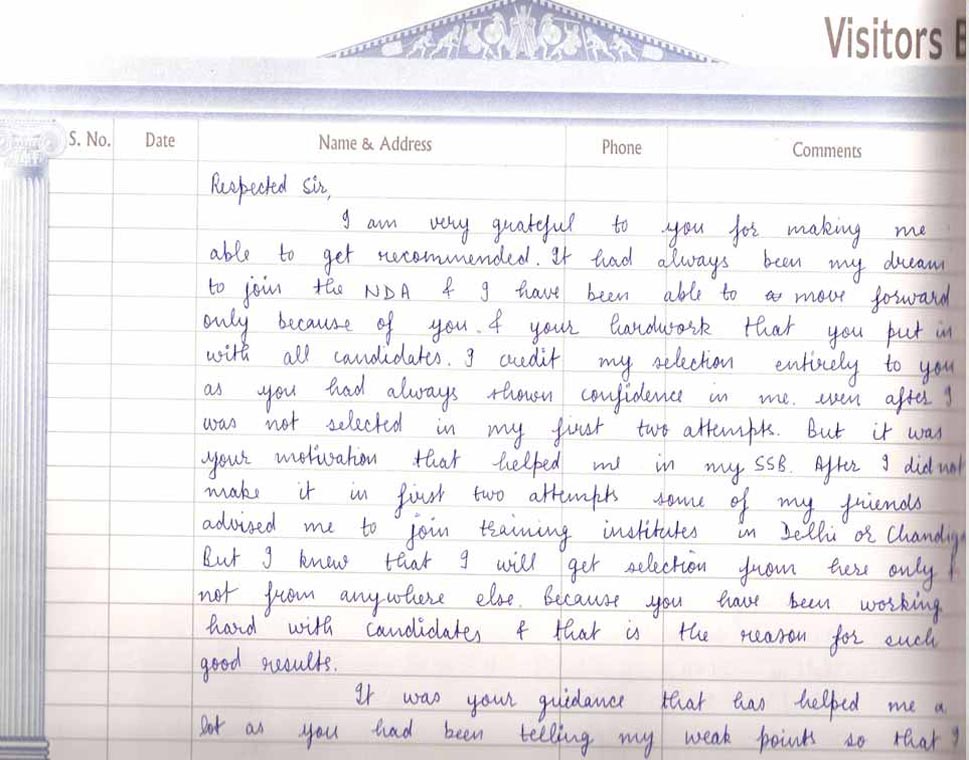 Visitors B
S. No. Date Name & Address Phone Comments
Respected Sir,
I am very grateful to you for making me
able to get recommended. It had always been my dream
to join the NDA & I have been able to move forward
only because of you & your hardwork that you put in
with all candidates. I credit my selection entirely to you
as you had always shown confidence in me. even after I
was not selected in my first two attempts. But it was
your motivation that helped me in my SSB. After I did not
make it in first two attempts some of my friends
advised me to join training institutes in Delhi or Chandig
But I knew that I will get selection from here only &
not from anywhere else. Because you have been working
hard with candidates & that is the reason for such
good results.
It was your guidance that has helped me a
lot as you had been telling my weak points so that I